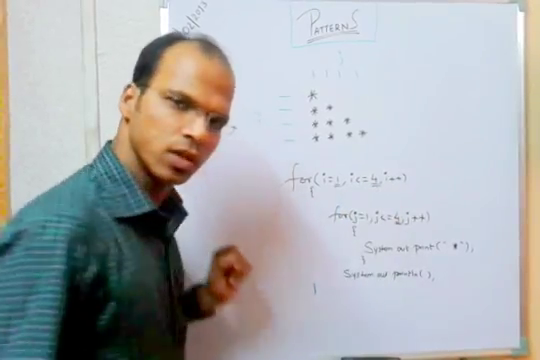 02/2013
PATTERNS
j
1 1 1 1
*
* *
* * *
* * * *
for(i=1,i<=4,i++)
{
for(j=1,j<=4,j++)
{
System out print(" * "),
}
System out println( ),
}